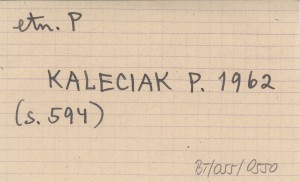 etn. P
KALECIAK P. 1962
(s. 594)
BT/055/0550